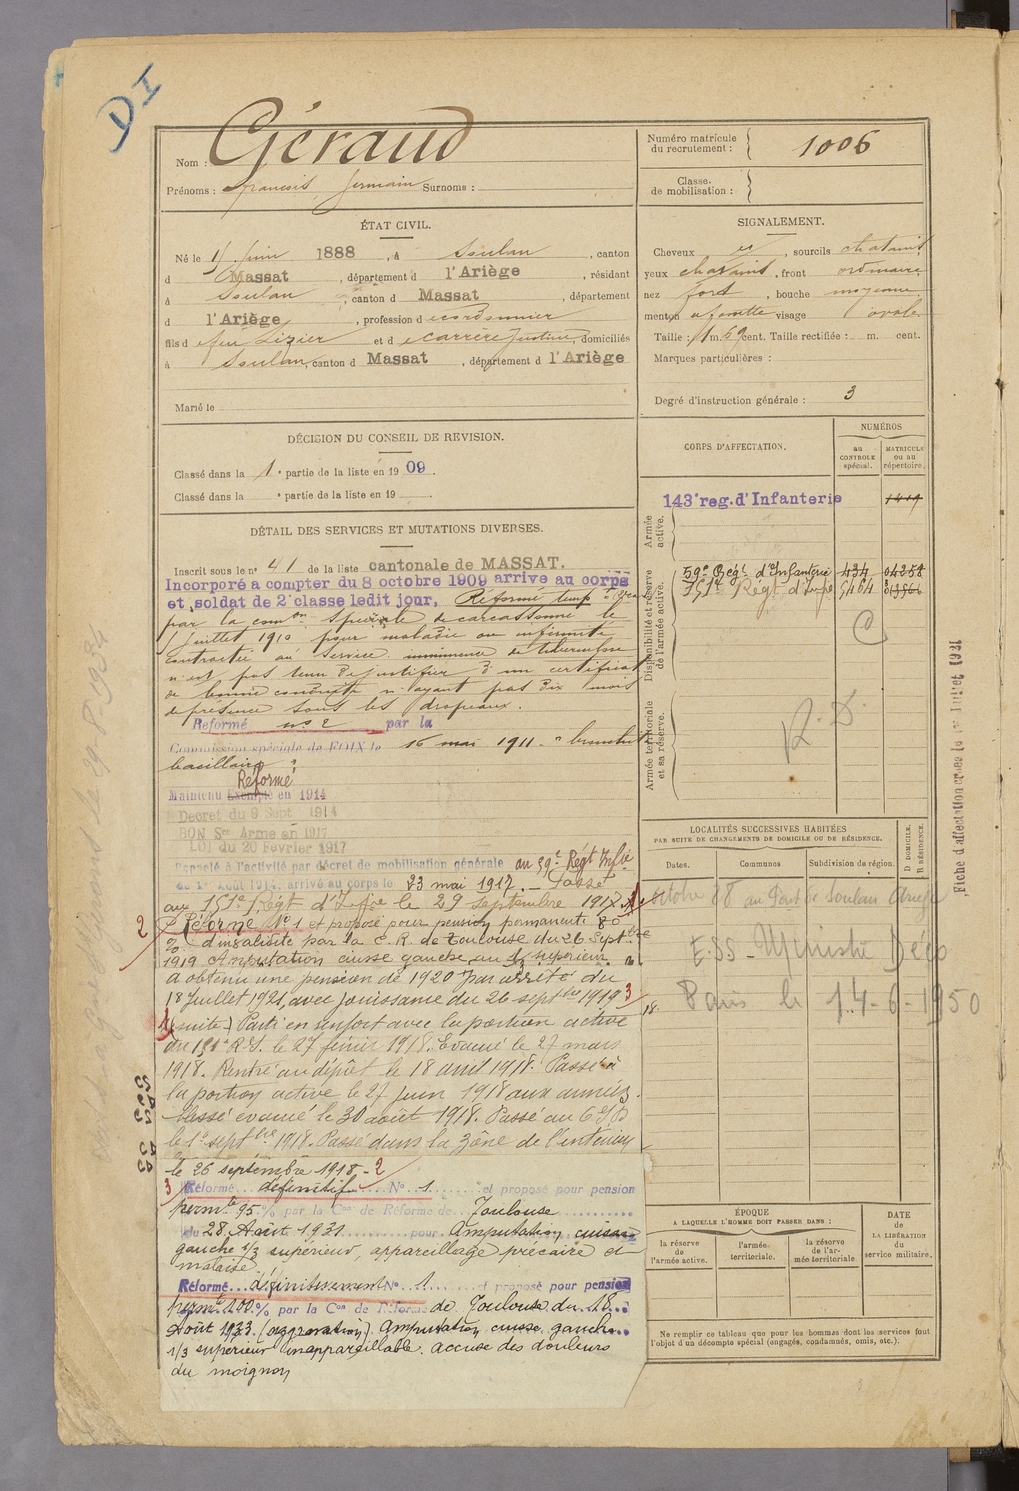 DI
Nom : Géraud
Prénoms : François Germain Surnoms :
Numéro matricule du recrutement : 1006
Classe de mobilisation :
ÉTAT CIVIL.
Né le Juin 1888, à Soulan, canton
d Massat, département d l'Ariège, résidant
à Soulan, canton d Massat, département
d l'Ariège, profession d cordonnier
fils d feu Lizier et d Carrère Justine, domiciliés
à Soulan, canton d Massat, département d l'Ariège
Marié le
SIGNALEMENT.
Cheveux et, sourcils chatains
yeux chatains, front ordinaire
nez fort, bouche moyenne
menton à fossette visage ovale
Taille : 1 m. 59 cent. Taille rectifiée : m. cent.
Marques particulières :
Degré d'instruction générale : 3
DÉCISION DU CONSEIL DE REVISION.
Classé dans la 1e partie de la liste en 1909.
Classé dans la e partie de la liste en 19 .
DÉTAIL DES SERVICES ET MUTATIONS DIVERSES.
Inscrit sous le n° 41 de la liste cantonale de MASSAT.
Incorporé a compter du 8 octobre 1909 arrive au corps
et soldat de 2e classe ledit jour, Réformé temp
par la comon spéciale de Carcassonne le
juillet 1910 pour maladie ou infirmité
contractée au service imminence de tuberculose
n'est pas tenu de justifier d'un certificat
de bonne conduite n'ayant pas dix mois
de présence sous les drapeaux.
Réformé n° 2 par la
Commission spéciale de FOIX le 16 mai 1911 " bronchite
bacillaire "
Réformé
Maintenu Exempté en 1914
Decret du 9 Sept 1914
BON Sce Armé en 1917
LOI du 20 Février 1917
Rappelé à l'activité par décret de mobilisation générale au 59e Régt Infie
du 1er Août 1914. arrivé au corps le 23 mai 1917. Passé
au 151e Régt d'Infie le 29 septembre 1917
2 Réformé N° 1 et proposé pour pension permanente 80
% d'invalidité par la C. R. de Toulouse du 26 Septbre
1919 Amputation cuisse gauche au 1/3 supérieur.
A obtenu une pension de 1920 par arrêté du
18 Juillet 1921, avec jouissance du 26 septbre 1919 3
1 (suite) Parti en renfort avec la portion active
du 151e R.I. le 27 février 1918. Evacué le 27 mars
1918. Rentré au dépôt le 18 avril 1918. Passé à
la portion active le 27 juin 1918 aux armées.
blessé évacué le 30 août 1918. Passé au
le 1er septbre 1918. Passé dans la zône de l'intérieur
le 26 septembre 1918 - 2
3 Réformé définitif N° 1 et proposé pour pension
permte 95 % par la Con de Réforme de Toulouse
du 28 Août 1931 pour Amputation cuisse
gauche 1/3 supérieur, appareillage précaire et
malaisé
Réformé définitivement N° 1 et proposé pour pension
permte 100 % par la Con de Réforme de Toulouse du 18
Août 1933. (aggravation) Amputation cuisse gauche
1/3 supérieur inappareillable. accuse des douleurs
du moignon
CORPS D'AFFECTATION.
NUMÉROS
au CONTROLE spécial.
MATRICULE ou au répertoire.
Armée active.
143e reg. d'Infanterie 1419
Disponibilité et réserve de l'armée active.
59e Régt d'Infanterie 434 04258
151e Régt d'Infie 5464
Armée territoriale et sa réserve.
LOCALITÉS SUCCESSIVES HABITÉES
PAR SUITE DE CHANGEMENTS DE DOMICILE OU DE RÉSIDENCE.
Dates. Communes Subdivision de région. D DOMICILE. R RÉSIDENCE.
octobre 28 au Port de Soulan Ariège
Paris le 14-6-1950
ÉPOQUE
A LAQUELLE L'HOMME DOIT PASSER DANS :
la réserve de l'armée active.
l'armée territoriale.
la réserve de l'armée territoriale
DATE de LA LIBÉRATION du service militaire.
Ne remplir ce tableau que pour les hommes dont les services font
l'objet d'un décompte spécial (engagés, condamnés, omis, etc.).